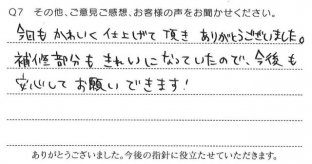 Q7 その他、ご意見ご感想、お客様の声をお聞かせください。
今回もかわいく仕上げて頂きありがとうございました。
補修部分もきれいになっていたので、今後も
安心してお願いできます!
ありがとうございました。今後の指針に役立たせていただきます。